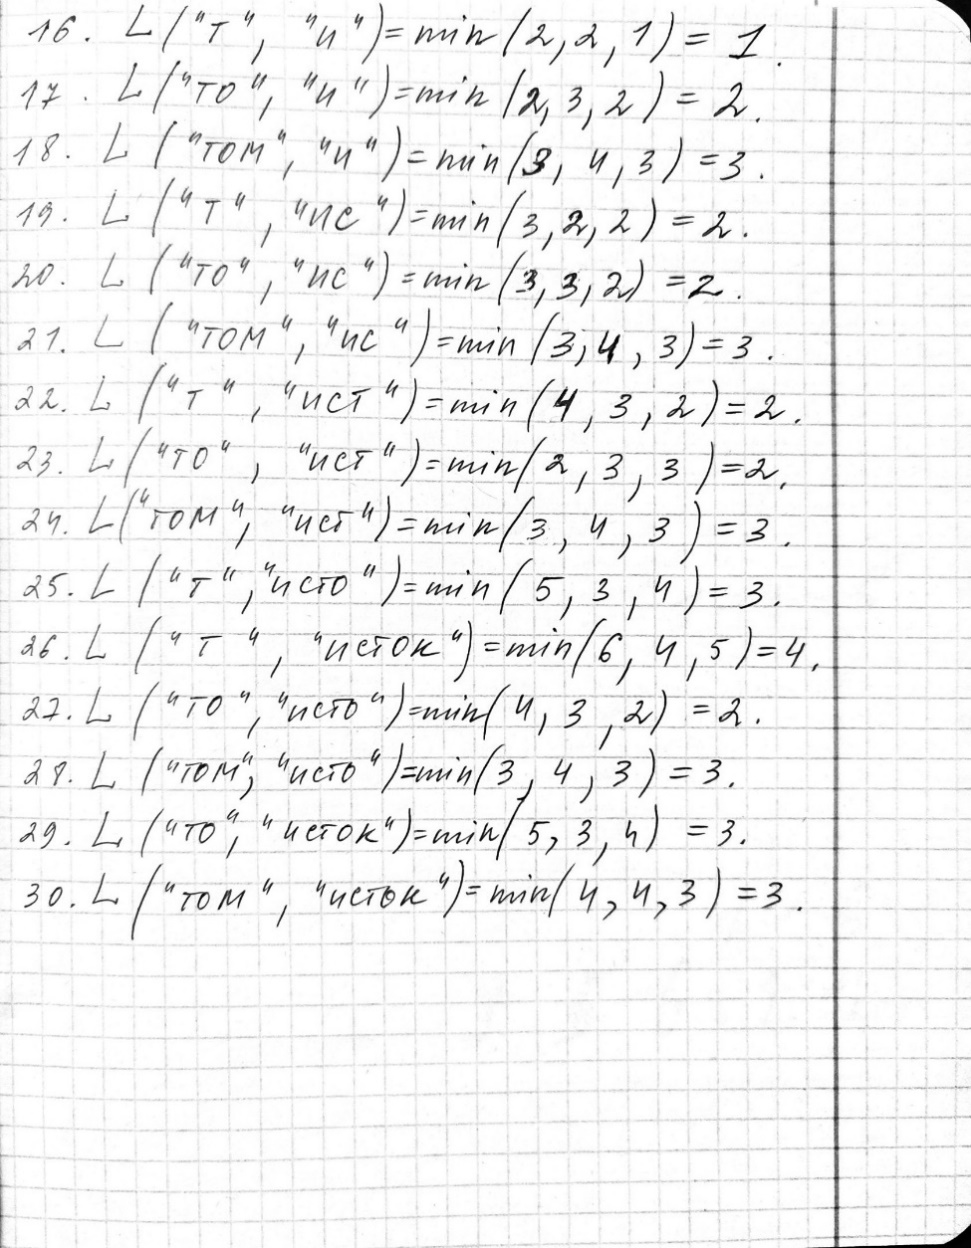 16. L("т", "и")=min(2,2,1) = 1.
17. L("то", "и")=min(2,3,2) = 2.
18. L("том", "и")=min(3,4,3)=3.
19. L("т", "ис")=min(3,2,2)=2.
20. L("то", "ис")=min(3,3,2)=2.
21. L("том", "ис")=min(3,4,3)=3.
22. L("т", "ист")=min(4,3,2)=2.
23. L("то", "ист")=min(2,3,3)=2.
24. L("том", "ист")=min(3,4,3)=3.
25. L("т", "исто")=min(5,3,4)=3.
26. L("т", "исток")=min(6,4,5)=4.
27. L("то", "исто")=min(4,3,2)=2.
28. L("том", "исто")=min(3,4,3)=3.
29. L("то", "исток")=min(5,3,4)=3.
30. L("том", "исток")=min(4,4,3)=3.